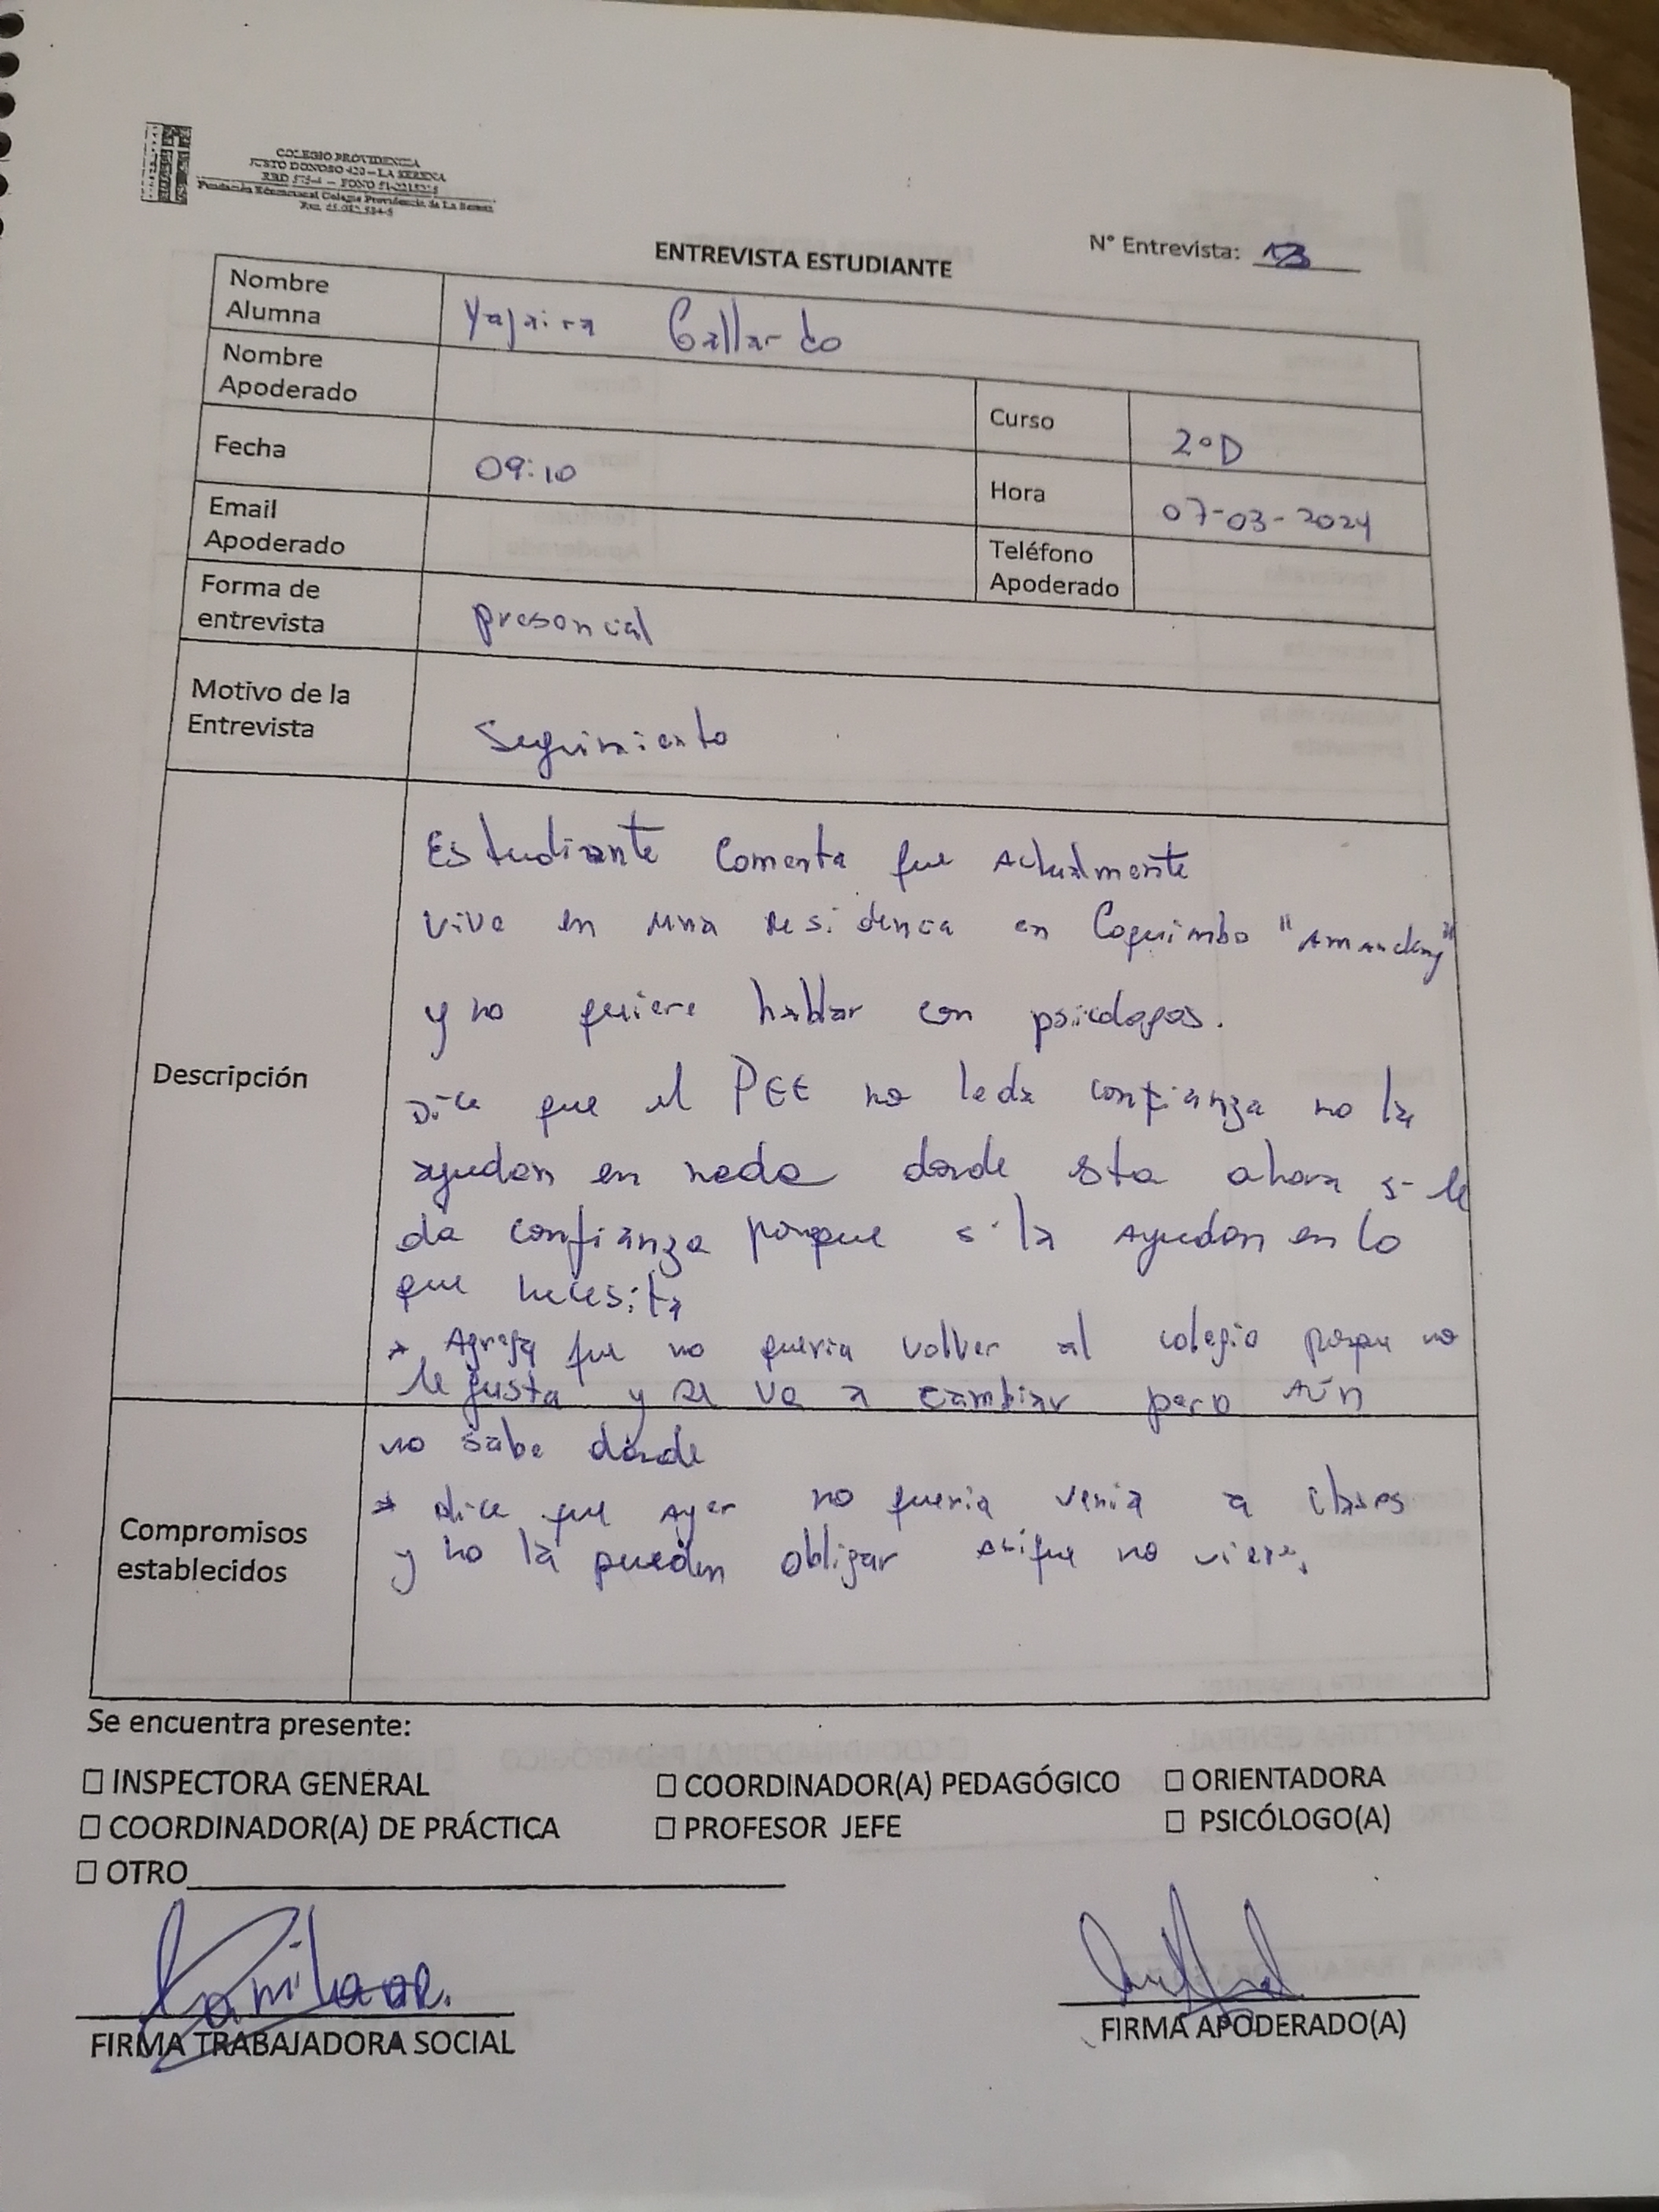 COLEGIO PROVIDENCIA
JUSTO DONOSO 420 – LA SERENA
Fundación Educacional Colegio Providencia de La Serena
ENTREVISTA ESTUDIANTE
N° Entrevista: 13
Nombre Alumna Yajaira Gallardo
Nombre Apoderado
Curso 2°D
Fecha 09:10
Hora 07-03-2024
Email Apoderado
Teléfono Apoderado
Forma de entrevista presencial
Motivo de la Entrevista Seguimiento
Descripción
Estudiante comenta que actualmente
vive en una residencia en Coquimbo "Amancay"
y no quiere hablar con psicologos.
Dice que el PEE no le da confianza no la
ayudan en nada donde esta ahora si le
da confianza porque si la ayudan en lo
que necesita
* Agrega que no queria volver al colegio porque no
le gusta y se va a cambiar pero aún
no sabe donde
* dice que ayer no queria venia a clases
y no la pueden obligar asique no viene,
Compromisos establecidos
Se encuentra presente:
☐ INSPECTORA GENERAL ☐ COORDINADOR(A) PEDAGÓGICO ☐ ORIENTADORA
☐ COORDINADOR(A) DE PRÁCTICA ☐ PROFESOR JEFE ☐ PSICÓLOGO(A)
☐ OTRO
FIRMA TRABAJADORA SOCIAL
FIRMA APODERADO(A)